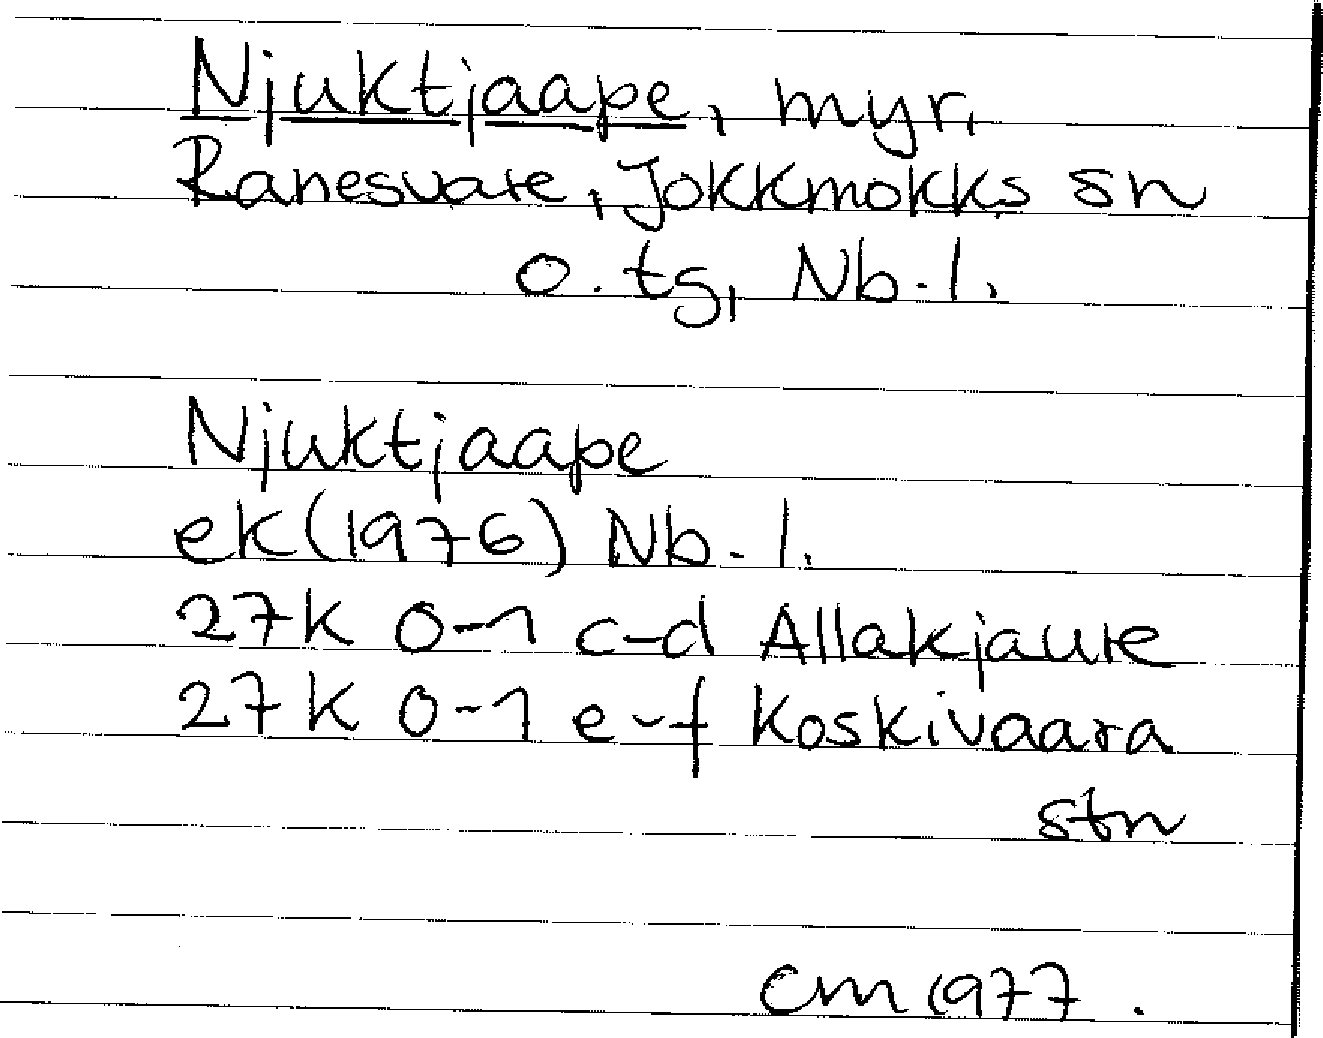 Njuktjaape, myr,
Ranesvare, Jokkmokks sn
o. tg, Nb. l.
Njuktjaape
ek (1976) Nb. l.
27k 0-1 c-d Allakjaure
27k 0-1 e-f Koskivaara
stn
CM 1977.